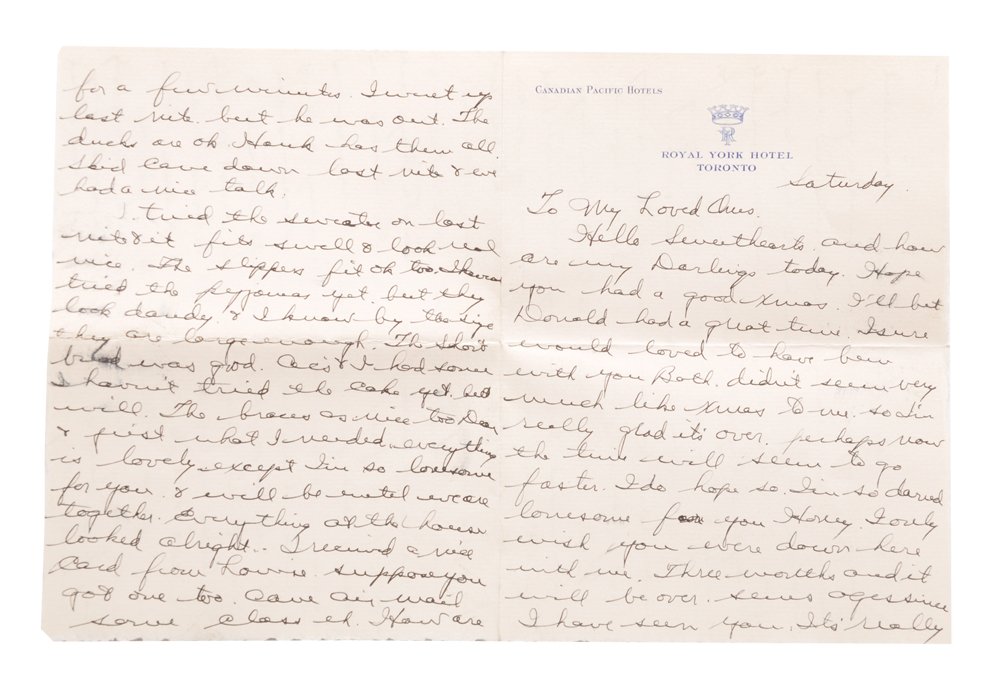 CANADIAN PACIFIC HOTELS
ROYAL YORK HOTEL
TORONTO
Saturday.
To My Loved Ones.
Hello Sweethearts. and how
are my Darlings today. Hope
you had a good Xmas. I'll bet
Donald had a great time. I sure
would loved to have been
with you Both. didn't seem very
much like Xmas to me. so I'm
really glad it's over. perhaps now
the time will seem to go
faster. I do hope so. I'm so darned
lonesome for you Honey. I only
wish you were down here
with me. Three months and it
will be over. seems ages since
I have seen you. It's really
for a few minutes. I went up
last nite. but he was out. The
ducks are ok. Hank has them all.
Skid came down last nite & we
had a nice talk.
I tried the sweater on last
nite & it fits swell & look real
nice. The slippers fit ok too. I haven
tried the pyjamas yet. but they
look dandy. & I know by the size
they are large enough. The short
bread was good. & I had some
I havn't tried the cake yet. but
will. The braces as nice too Dear
& just what I needed. everything
is lovely except I'm so lonesome
for you. & will be until we are
together. Everything at the house
looked alright. I received a nice
card from Louise. suppose you
got one too. came air mail
some class eh. How are